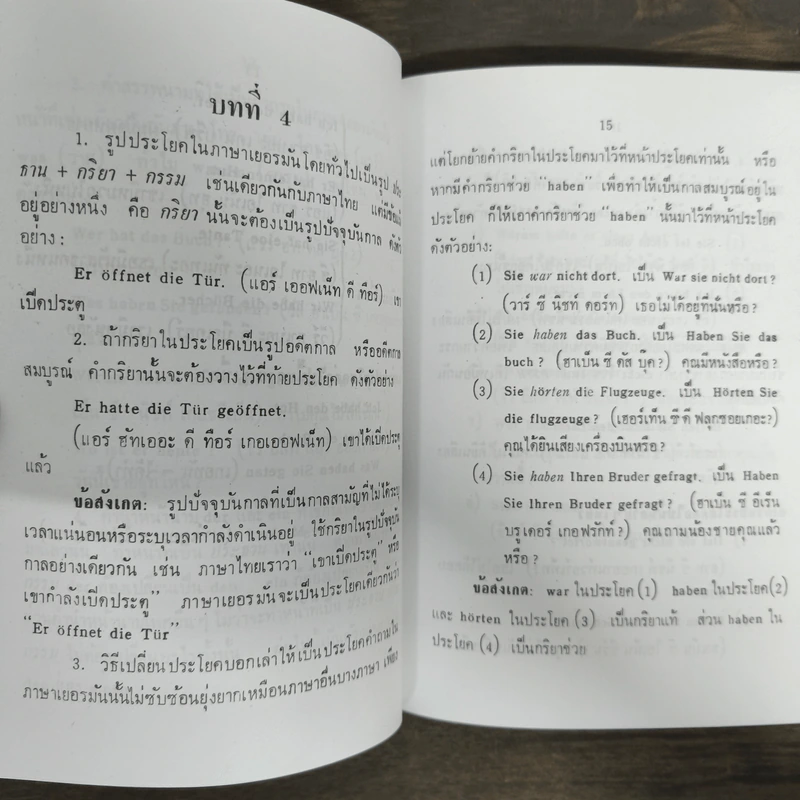 บทที่ 4
1. รูปประโยคในภาษาเยอรมันโดยทั่วไปเป็นรูป
ธาน + กริยา + กรรม เช่นเดียวกันกับภาษาไทย แต่มีข้อแม้
อยู่อย่างหนึ่ง คือ กริยา นั้นจะต้องเป็นรูปปัจจุบันกาล ดังตัว
อย่าง:
Er öffnet die Tür. (แอร์ เออฟเน็ท ดี ทือร์) เขา
เปิดประตู
2. ถ้ากริยาในประโยคเป็นรูปอดีตกาล หรืออดีตกาล
สมบูรณ์ คำกริยานั้นจะต้องวางไว้ที่ท้ายประโยค ดังตัวอย่าง
Er hatte die Tür geöffnet.
(แอร์ ฮัทเออะ ดี ทือร์ เกอเออฟเน็ท) เขาได้เปิดประตู
แล้ว
ข้อสังเกต: รูปปัจจุบันกาลที่เป็นกาลสามัญที่ไม่ได้ระบุ
เวลาแน่นอนหรือระบุเวลากำลังดำเนินอยู่ ใช้กริยาในรูปปัจจุบัน
กาลอย่างเดียวกัน เช่น ภาษาไทยเราว่า "เขาเปิดประตู" หรือ
เขากำลังเปิดประตู" ภาษาเยอรมันจะเป็นประโยคเดียวกันว่า
"Er öffnet die Tür"
3. วิธีเปลี่ยนประโยคบอกเล่าให้เป็นประโยคคำถามใน
ภาษาเยอรมันนั้นไม่ซับซ้อนยุ่งยากเหมือนภาษาอื่นบางภาษา เพียง
15
แต่โยกย้ายคำกริยาในประโยคมาไว้ที่หน้าประโยคเท่านั้น หรือ
หากมีคำกริยาช่วย "haben" เพื่อทำให้เป็นกาลสมบูรณ์อยู่ใน
ประโยค ก็ให้เอาคำกริยาช่วย "haben" นั้นมาไว้ที่หน้าประโยค
ดังตัวอย่าง:
(1) Sie war nicht dort. เป็น War sie nicht dort?
(วาร์ ซี นิชท์ ดอร์ท) เธอไม่ได้อยู่ที่นั่นหรือ?
(2) Sie haben das Buch. เป็น Haben Sie das
buch? (ฮาเบ็น ซี ดัส บุ๊ค?) คุณมีหนังสือหรือ?
(3) Sie hörten die Flugzeuge. เป็น Hörten Sie
die flugzeuge? (เฮอร์เท็น ซี ดี ฟลุกซอยเกอะ?)
คุณได้ยินเสียงเครื่องบินหรือ?
(4) Sie haben Ihren Bruder gefragt. เป็น Haben
Sie Ihren Bruder gefragt? (ฮาเบ็น ซี อีเร็น
บรูเดอร์ เกอฟรักท์?) คุณถามน้องชายคุณแล้ว
หรือ?
ข้อสังเกต: war ในประโยค (1) haben ในประโยค(2)
และ hörten ในประโยค (3) เป็นกริยาแท้ ส่วน haben ใน
ประโยค (4) เป็นกริยาช่วย